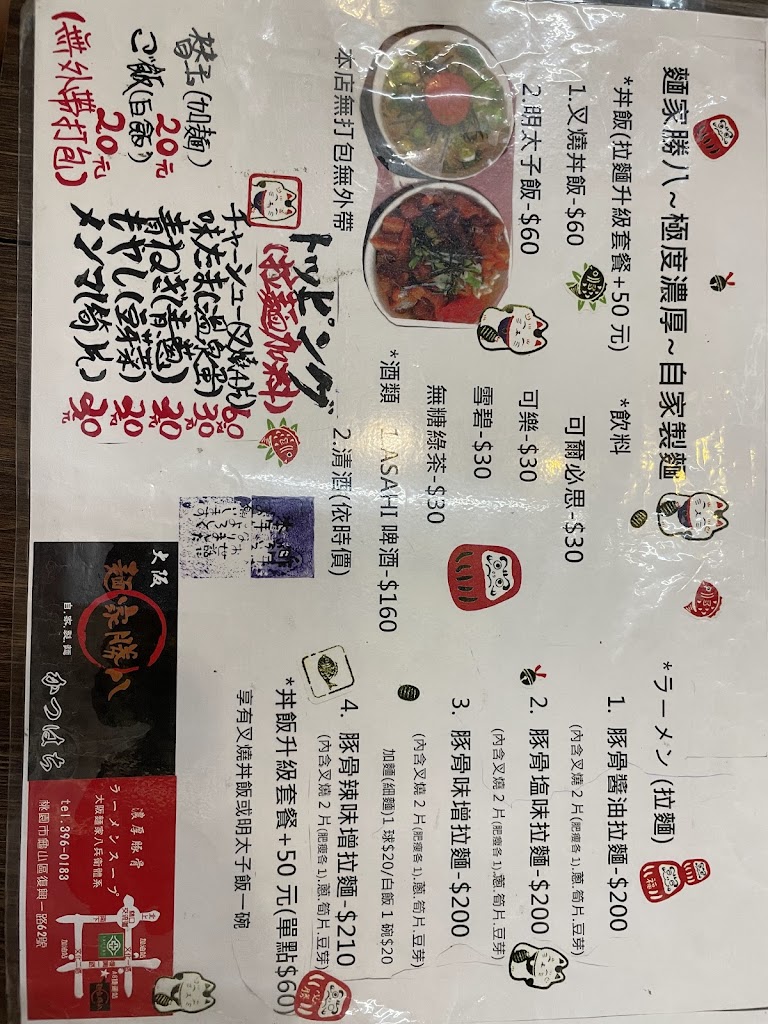 麵家勝八~極度濃厚~自家製麵
*丼飯(拉麵升級套餐+50元)
1.叉燒丼飯-$60
2.明太子飯-$60
本店無打包無外帶
*飲料
可爾必思-$30
可樂-$30
雪碧-$30
無糖綠茶-$30
*酒類 1.ASAHI 啤酒-$160
2.清酒(依時價)
替玉(加麵) 20元
ご飯(白飯) 20元
(無外帶打包)
トッピング
(拉麵加料)
チャーシュー(叉燒2片) 60元
味たま(溫泉蛋) 30元
青ねぎ(青蔥) 20元
もやし(豆芽菜) 20元
メンマ(筍片) 20元
*ラーメン(拉麵)
1. 豚骨醬油拉麵-$200
(內含叉燒 2 片(肥瘦各 1).蔥.筍片.豆芽)
2. 豚骨塩味拉麵-$200
(內含叉燒 2 片(肥瘦各 1).蔥.筍片.豆芽)
3. 豚骨味增拉麵-$200
(內含叉燒 2 片(肥瘦各 1).蔥.筍片.豆芽)
加麵(細麵)1 球$20/白飯 1 碗$20
4. 豚骨辣味增拉麵-$210
(內含叉燒 2 片(肥瘦各 1).蔥.筍片.豆芽)
*丼飯升級套餐+50 元(單點$60)
享有叉燒丼飯或明太子飯一碗
大阪
麵家勝八
自.家.製.麵
かつはち
濃厚豚骨
ラーメンスープ
大阪麵家八兵衛體系
tel.396-0183
桃園市龜山區復興一路62號